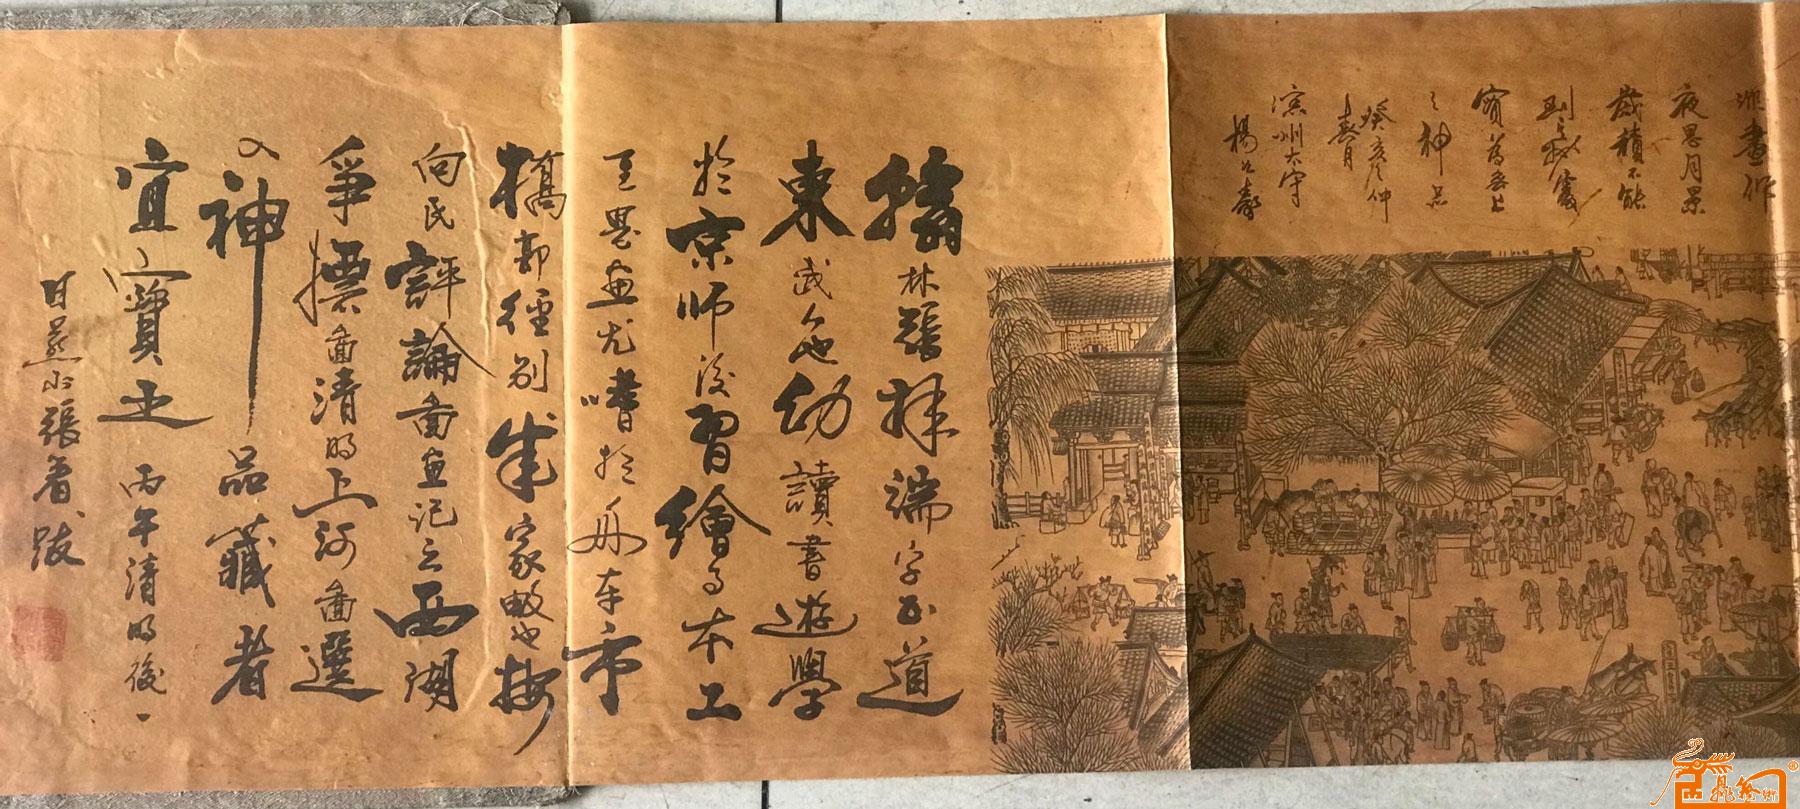 夜思月景
歲積不能
到
實爲無上
之神品
癸亥之仲
春月
滦州太守
楊
翰林張擇端字正道
東武人也幼讀書遊學
於京師後習繪事本工
畫尤嗜於舟車市
橋郭徑別成家數也按
向氏評論圖畫記云西湖
爭標圖清明上河圖選
入神品藏者
宜寶之 丙午清明後一
日燕山張著跋